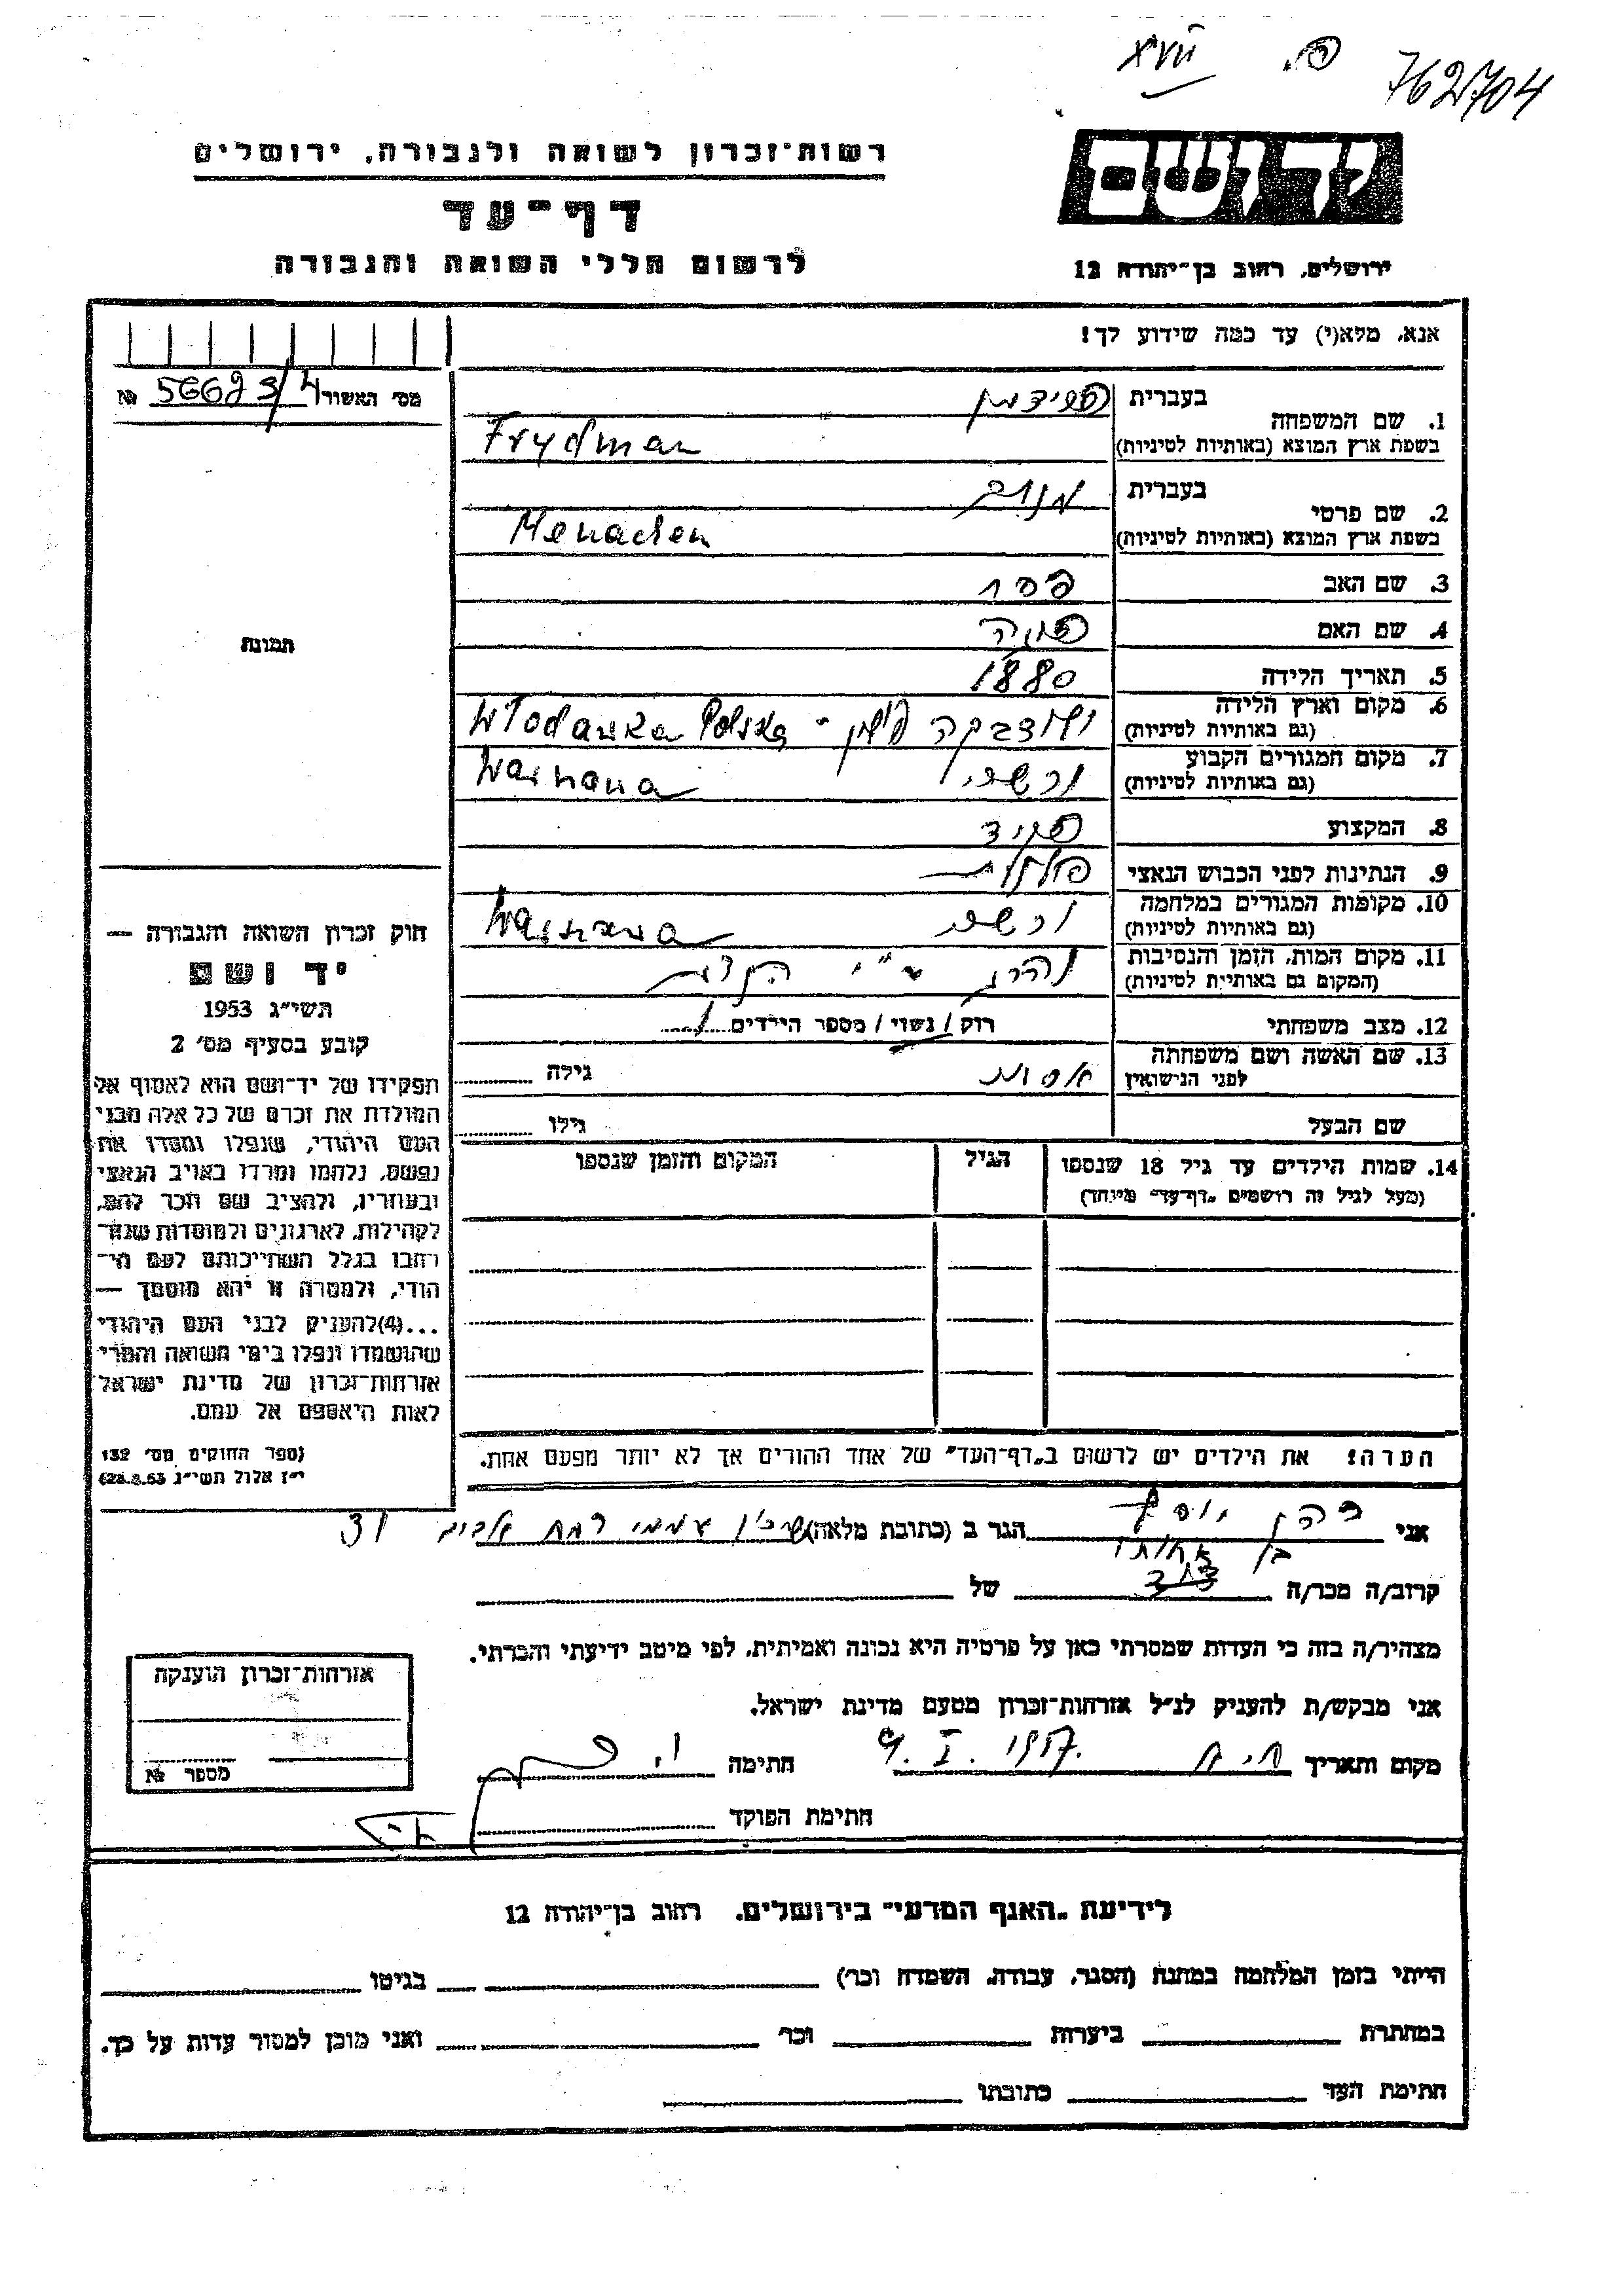 762704
רשות־זכרון לשואה ולגבורה, ירושלים
דף־עד
לרשום חללי השואה והגבורה
יד ושם
ירושלים, רחוב בן־יהודה 12
אנא, מלא(י) עד כמה שידוע לך!
מס׳ האשור 56623/4 №
1. שם המשפחה
בעברית פרידמן
בשפת ארץ המוצא (באותיות לטיניות) Frydman
2. שם פרטי
בעברית מנחם
בשפת ארץ המוצא (באותיות לטיניות) Menachem
3. שם האב
4. שם האם
5. תאריך הלידה 1880
6. מקום וארץ הלידה
(גם באותיות לטיניות) פולין - Polska
7. מקום המגורים הקבוע ורשה
(גם באותיות לטיניות) Warszawa
8. המקצוע פקיד
9. הנתינות לפני הכבוש הנאצי פולנית
10. מקומות המגורים במלחמה ורשה
(גם באותיות לטיניות) Warszawa
11. מקום המות, הזמן והנסיבות נהרג ע"י
(המקום גם באותיות לטיניות)
12. מצב משפחתי רוק / נשוי / מספר הילדים 1
13. שם האשה ושם משפחתה
לפני הנישואין אסתר גילה
שם הבעל גילו
14. שמות הילדים עד גיל 18 שנספו
(מעל לגיל זה רושמים „דף־עד״ מיוחד)
הגיל
המקום והזמן שנספו
הערה! את הילדים יש לרשום ב„דף־העד״ של אחד ההורים אך לא יותר מפעם אחת.
תמונה
חוק זכרון השואה והגבורה —
יד ושם
תשי״ג 1953
קובע בסעיף מס׳ 2
תפקידו של יד־ושם הוא לאסוף אל
המולדת את זכרם של כל אלה מבני
העם היהודי, שנפלו ומסרו את
נפשם, נלחמו ומרדו באויב הנאצי
ובעוזריו, ולהציב שם וזכר להם,
לקהילות, לארגונים ולמוסדות שנח־
רבו בגלל השתייכותם לעם הי־
הודי, ולמטרה זו יהא מוסמך —
...(4)להעניק לבני העם היהודי
שהושמדו ונפלו בימי השואה והמרי
אזרחות־זכרון של מדינת ישראל
לאות היאספם אל עמם.
(ספר החוקים מס׳ 132
י״ז אלול תשי״ג 28.8.53)
אני כהן יוסף הגר ב (כתובת מלאה) שכון עממי רמת אביב 31
בן אחותו
קרוב/ה מכר/ה של
מצהיר/ה בזה כי העדות שמסרתי כאן על פרטיה היא נכונה ואמיתית, לפי מיטב ידיעתי והכרתי.
אני מבקש/ת להעניק לנ״ל אזרחות־זכרון מטעם מדינת ישראל.
מקום ותאריך חתימה
חתימת הפוקד
אזרחות־זכרון הוענקה
מספר №
לידיעת „האגף המדעי״ בירושלים, רחוב בן־יהודה 12
הייתי בזמן המלחמה במחנה (הסגר, עבודה, השמדה וכו׳) בגיטו
במחתרת ביערות וכו׳ ואני מוכן למסור עדות על כך.
חתימת העד כתובתו